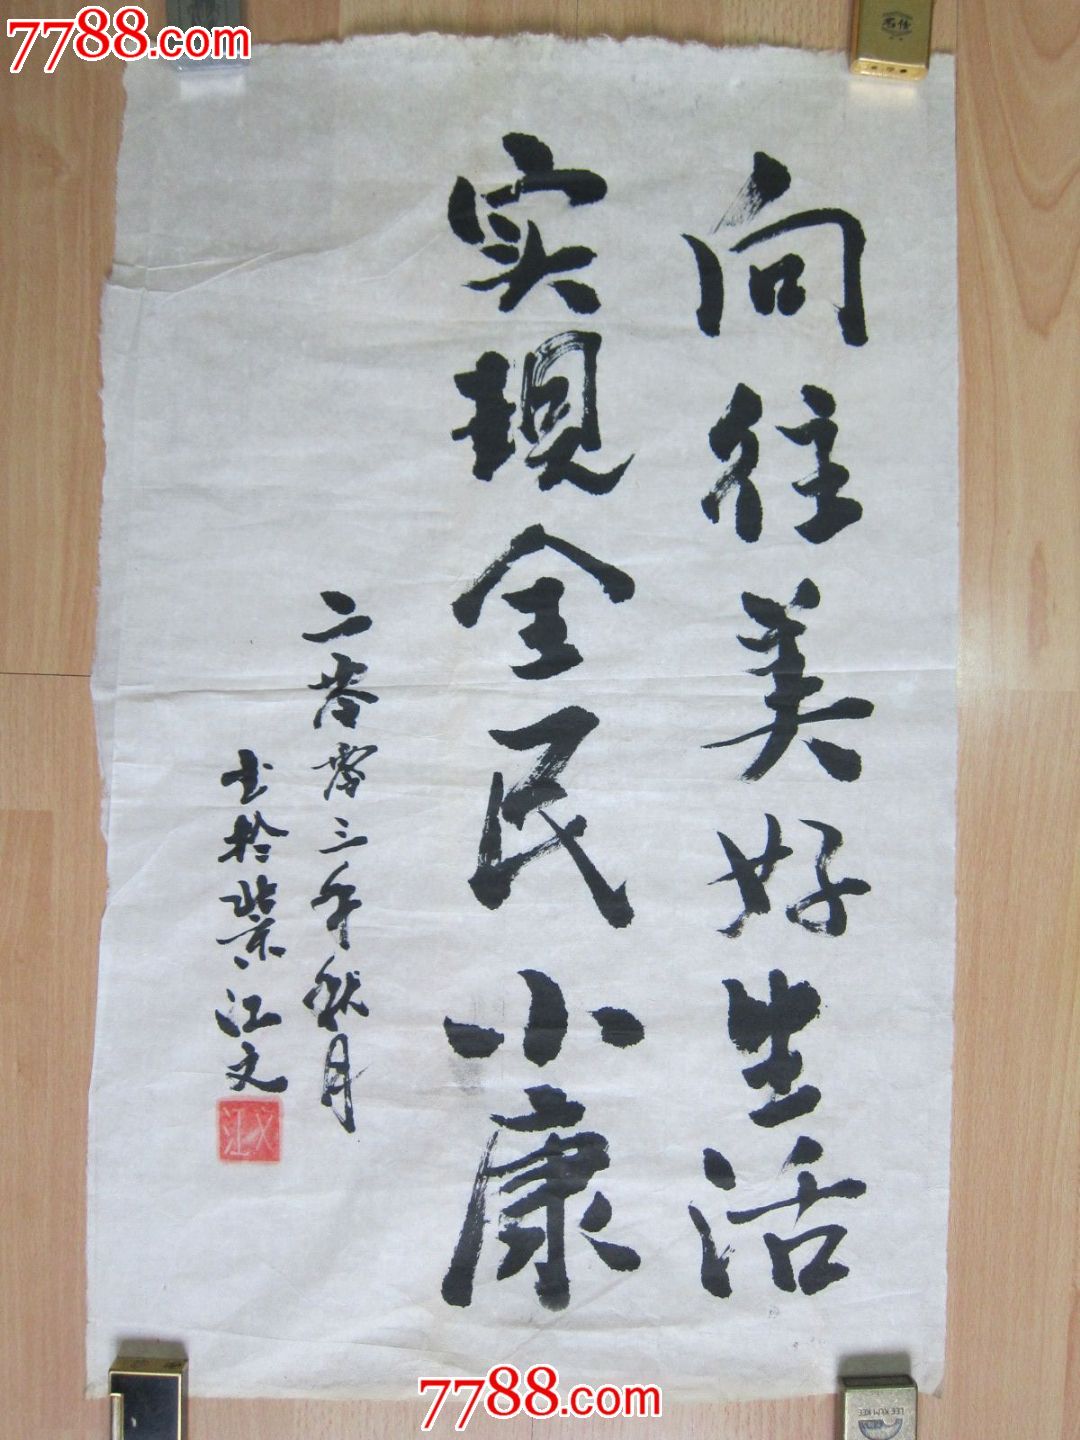 7788.com
向往美好生活
实现全民小康
二零零三年秋月
书於紫江文
江文
LEE KUM KEE
7788.com